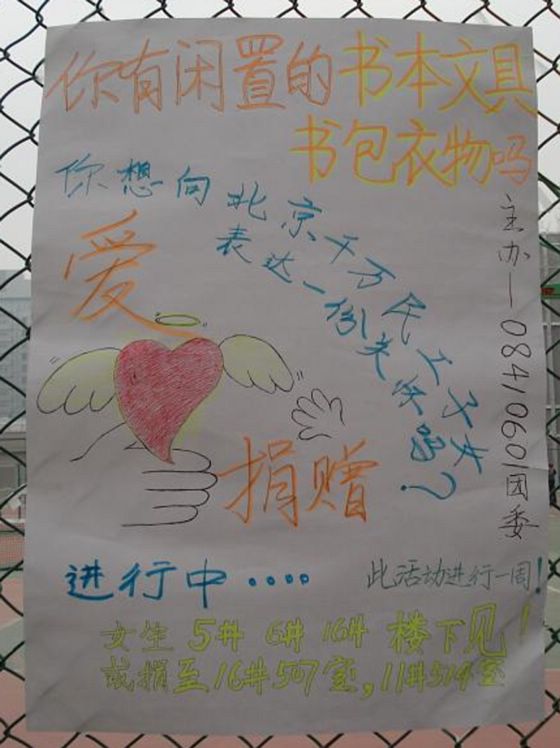 你有闲置的书本文具
书包衣物吗
你想向北京千万民工子女
表达一份关怀吗?
爱
捐赠
主办—08410601团委
进行中····
此活动进行一周!
女生 5# 6# 16# 楼下见!
或捐至16#507室,11#514室